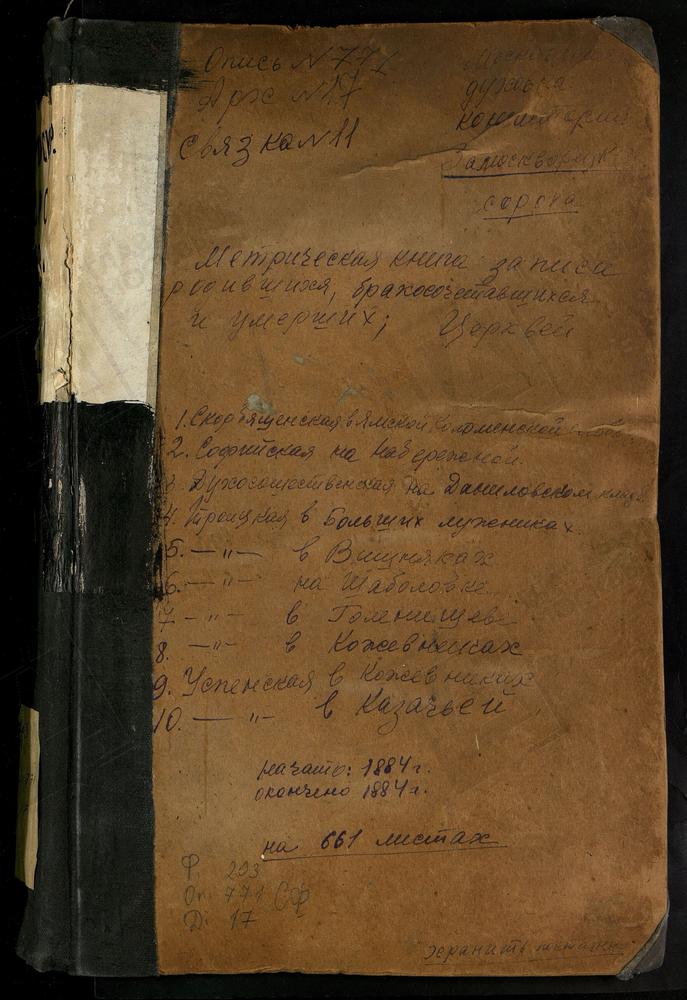 Опись N 771
Арх N17
Связка N 11
Московская
духовна
консистория
Замоскворецк
сорока
Метрическая книга записи
родившихся, бракосочетавшихся
и умерших; Церквей
1. Скорбященская в Ямской Коломенской слоб
2. Софийская на Набережной.
3. Духосошественская на Даниловском кладб
4. Троицкая в Больших лужениках.
5. — " — в Вишняках
6. — " — на Шаболовке
7 — " — в Голенищеве
8. — " — в Кожевниках
9. Успенская в Кожевниках
10. — " — в Казачьей
начато: 1884 г.
окончено 1884 г.
на 661 листах
Ф. 203
Оп. 771 Сф
Д. 17
хранить